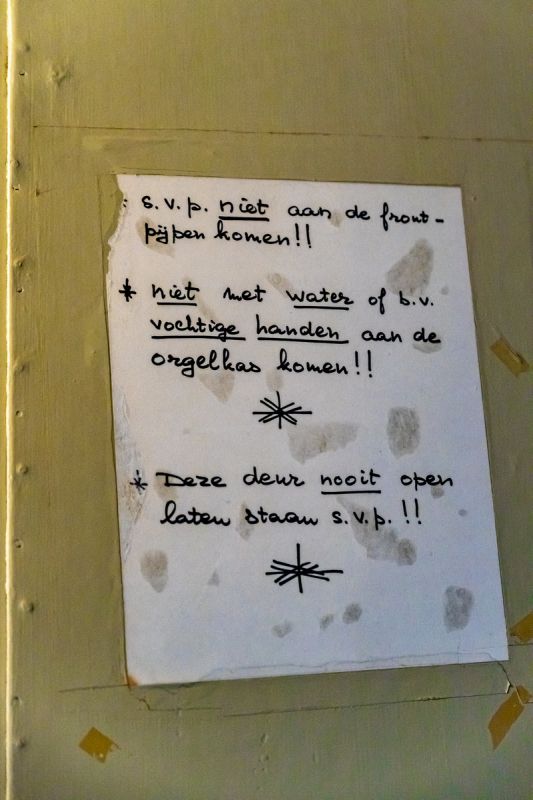 s.v.p. niet aan de front-
pijpen komen!!
* niet met water of b.v.
vochtige handen aan de
orgelkas komen!!
* Deze deur nooit open
laten staan s.v.p.!!